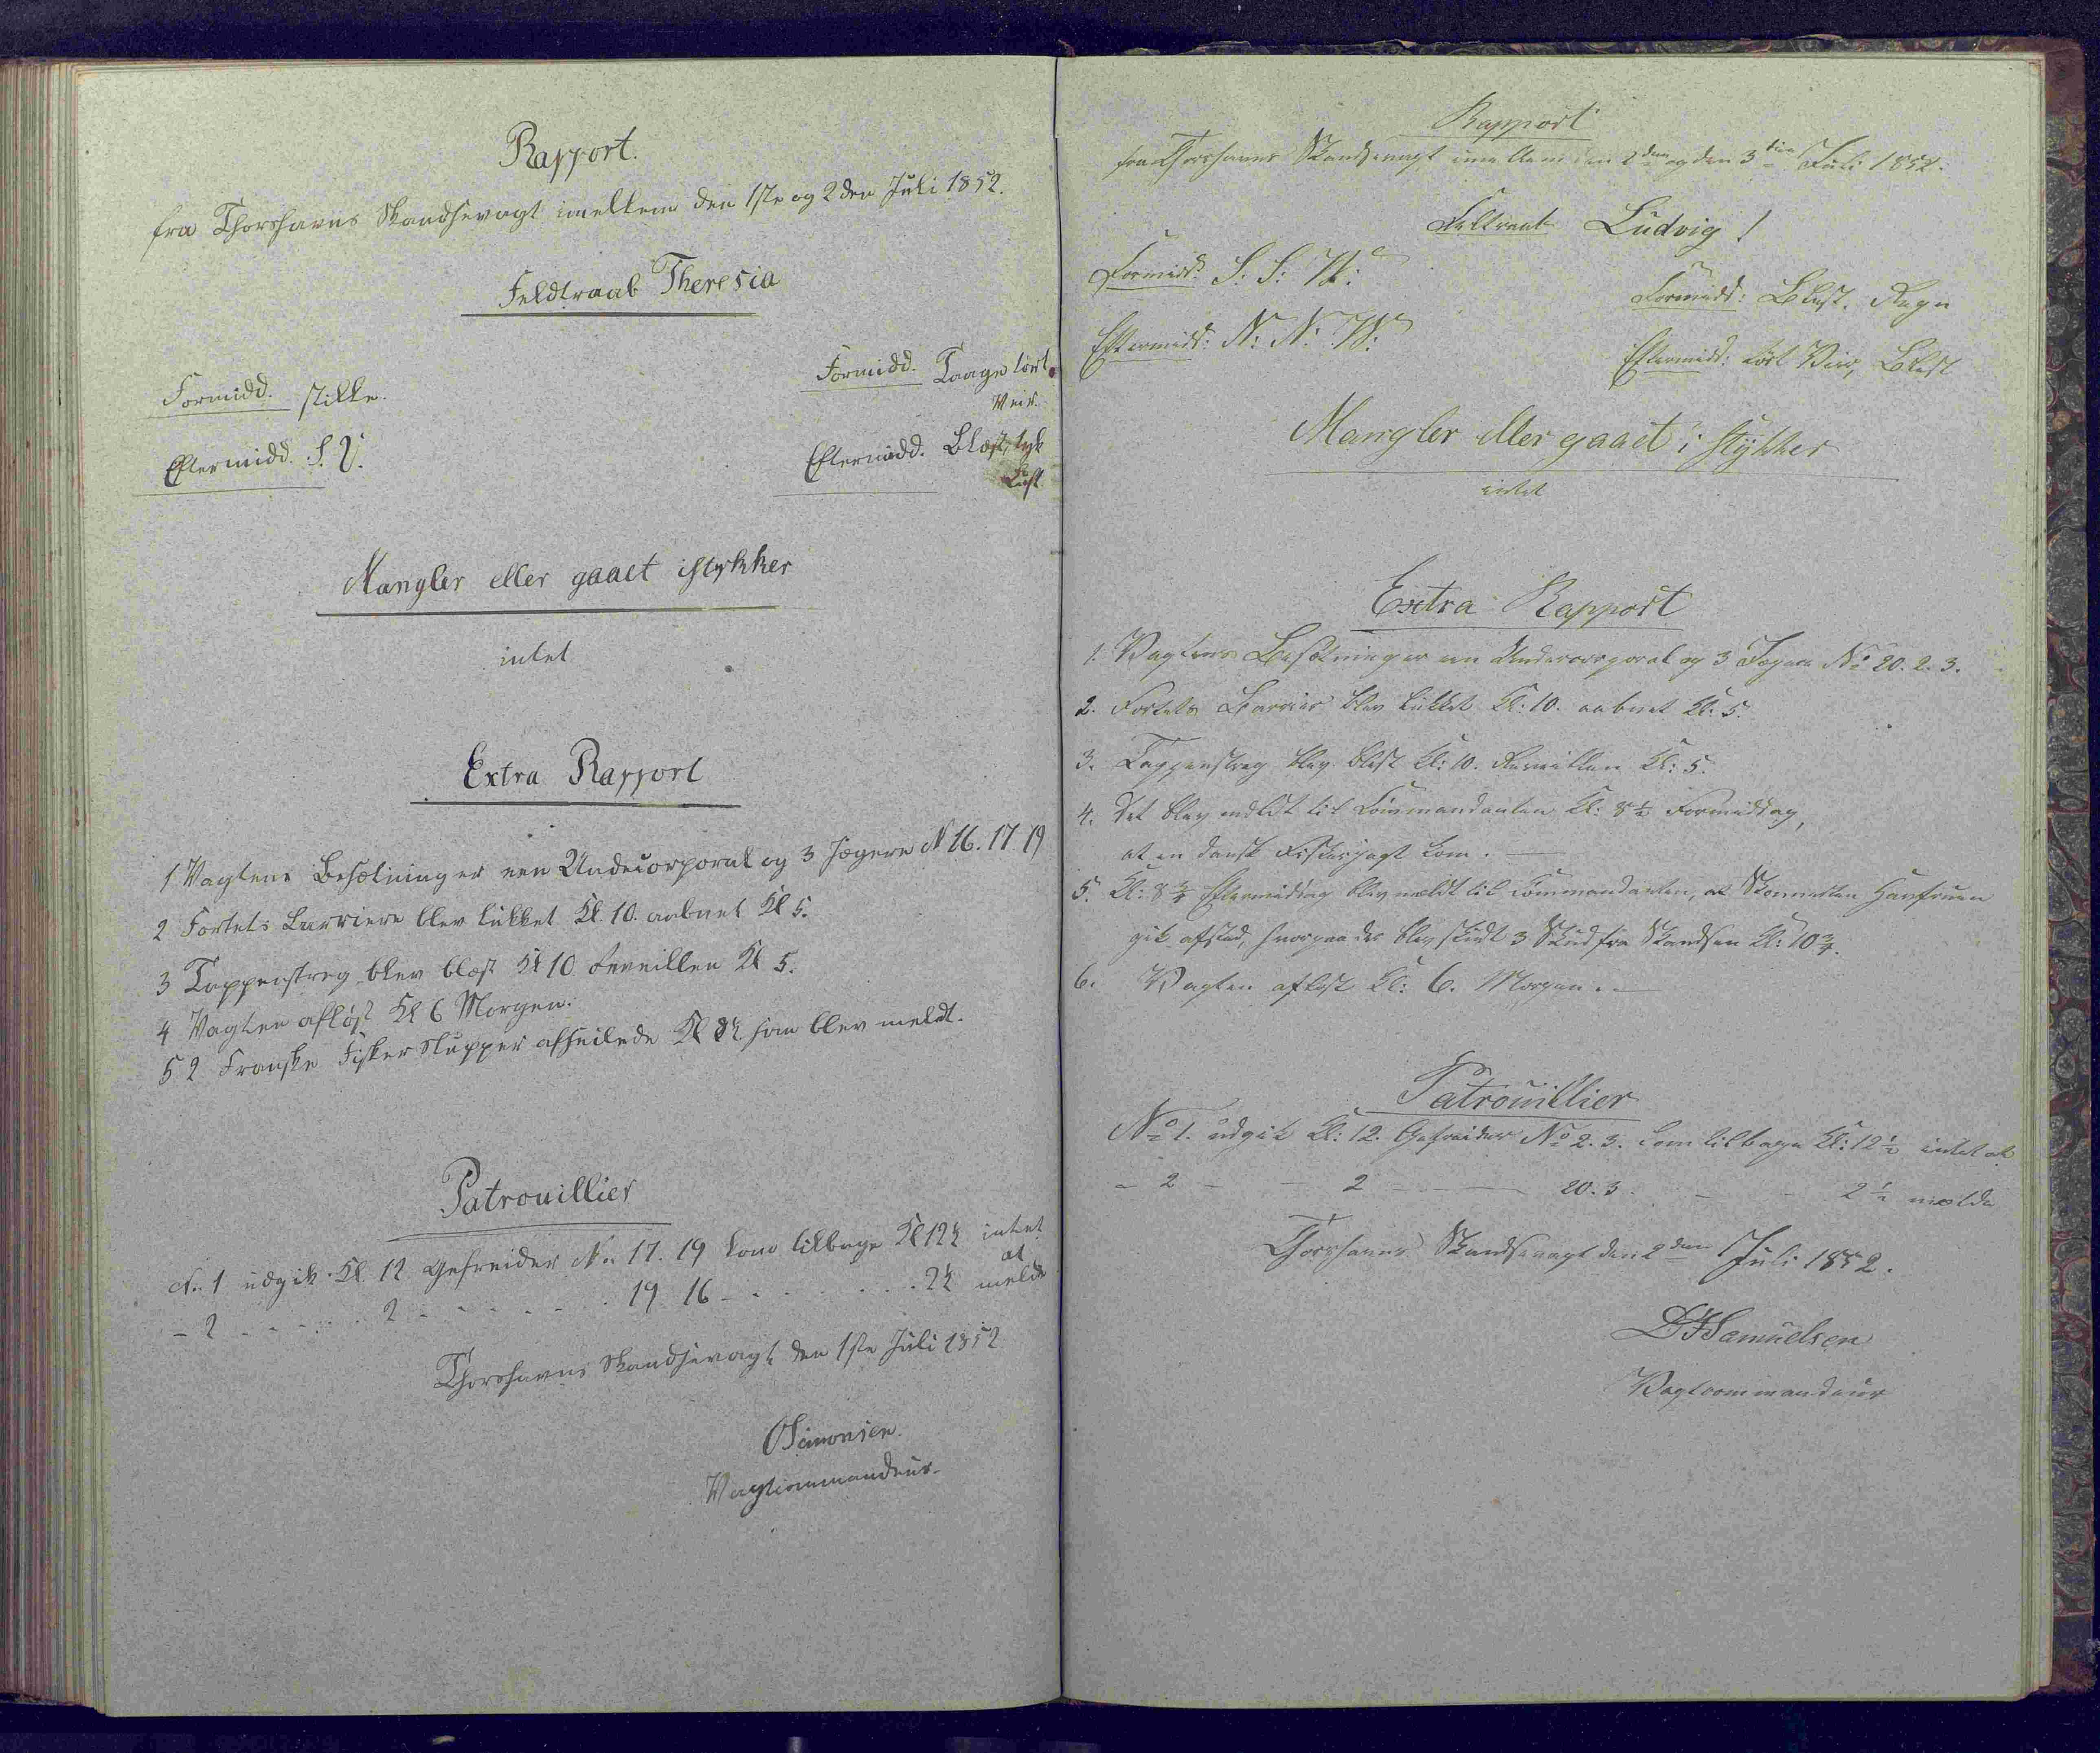 Rapport.
fra Thorshavns Skandsevagt imellem den 1ste og 2den Juli 1852.
Feldtraab Theresia
Formidd. stille.
Formidd. Taage tört
Veir.
Eftermidd. S. V.
Eftermidd. Blæst, tyk
Luft
Mangler eller gaaet istykker
intet
Extra Rapport
1 Vagtens Besætning er een Undecorporal og 3 Jægere N 16. 17. 19
2 Fortets Barriere blev lukket Kl. 10. aabnet Kl 5.
3 Tappenstreg blev blæst Kl 10 Reveillen Kl 5.
4 Vagten afløst Kl 6 Morgen.
5 2 Franske Fisker Slupper afseilede Kl som blev meldt.
Patrouillier
No. 1 udgik Kl. 12 Gefreider No. 17. 19 kom tilbage Kl 12½ intet
at
- 2 - - - - 2 - - - - - - 19 16 - - - - - - 2½ melde
Thorshavns Skandsevagt den 1ste Juli 1852
OSimonsen.
Vagtcommandeur.
Rapport
fra Thorshavns Skandsevagt imellem den 2den og den 3die Juli 1852.
Feltraab Ludvig!
Formidd: S: S: V:
Formidd: Blæst. Regn
Eftermidd: N: N: W:
Eftermidd: tört Veir, Blæst
Mangler eller gaaet i stykker
intet
Extra Rapport
1. Vagtens Besætning er een Undercorporal og 3 Jægere No 20. 2. 3.
2. Fortets Barrier blev lukket Kl: 10. aabnet Kl: 5.
3. Tappenstreg blev blæst Kl: 10. Reveillen Kl: 5.
4. Det blev meldt til Commandanten Kl: 8½ Formiddag,
at en dansk Fiskerjagt kom. —
5. Kl: 8¾ Eftermiddag blev meldt til Commandanten, at Skonnerten Havfruen
gik afsted, hvorpaa der blev skudt 3 Skud fra Skandsen Kl: 10¾.
6. Vagten afløst Kl: 6. Morgen. —
Patrouillier
No 1. udgik Kl: 12. Gefreider No 2. 3. kom tilbage Kl: 12½ intet at
- 2 - - 2 - — 20. 3. - - 2½ melde
Thorshavns Skandsevagt den 2den Juli 1852.
DHSamuelsen
Vagtcommandeur